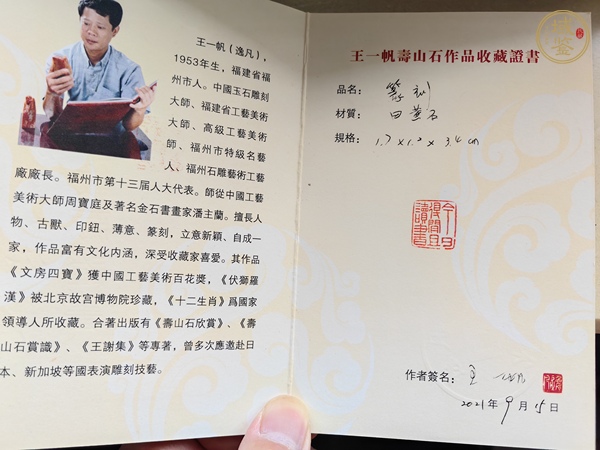 王一帆（逸凡），
1953年生，福建省福
州市人。中國玉石雕刻
大師、福建省工藝美術
大師、高級工藝美術
師、福州市特級名藝
人、福州石雕藝術工藝
廠廠長。福州市第十三届人大代表。師從中國工藝
美術大師周寶庭及著名金石書畫家潘主蘭。擅長人
物、古獸、印鈕、薄意、篆刻，立意新穎、自成一
家，作品富有文化内涵，深受收藏家喜愛。其作品
《文房四寶》獲中國工藝美術百花獎，《伏獅羅
漢》被北京故宫博物院珍藏，《十二生肖》爲國家
領導人所收藏。合著出版有《壽山石欣賞》、《壽
山石賞識》、《王謝集》等專著，曾多次應邀赴日
本、新加坡等國表演雕刻技藝。
王一帆壽山石作品收藏證書
品名：篆刻
材質：田黃石
規格：1.7×1.2×3.4cm
今日
得閒且
讀書
作者簽名：王一帆
2021年9月15日